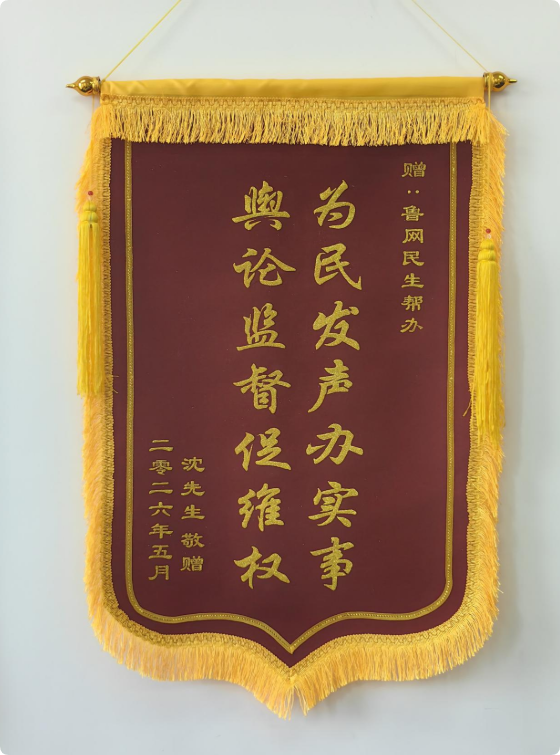 赠：鲁网民生帮办
为民发声办实事
舆论监督促维权
沈先生敬赠
二零二六年五月